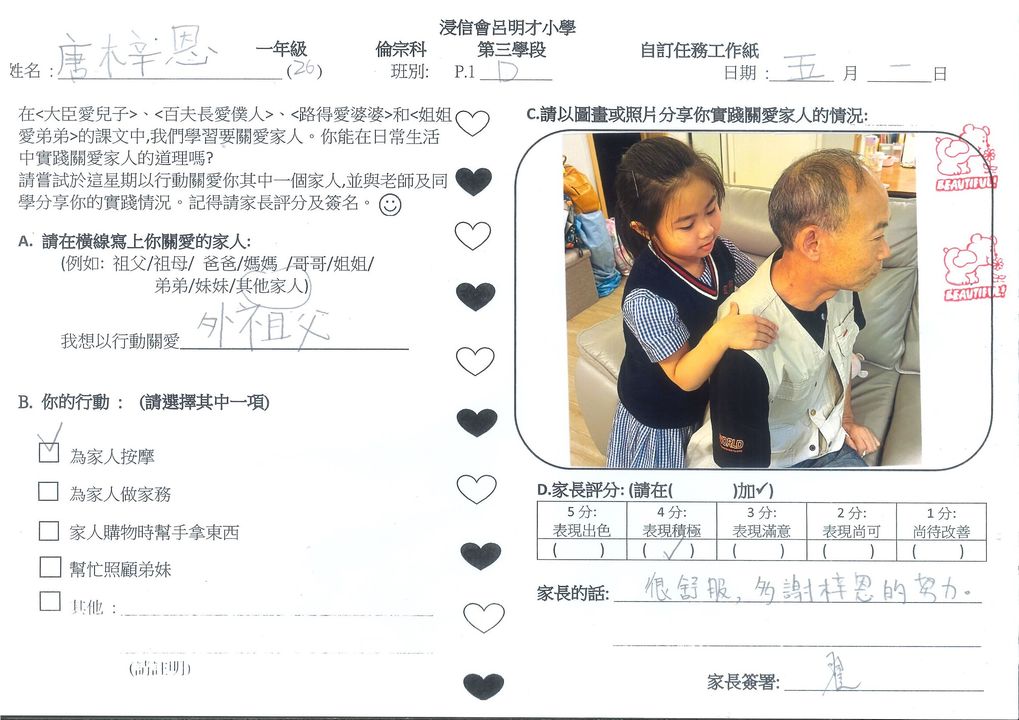 浸信會呂明才小學
一年級 倫宗科 第三學段 自訂任務工作紙
姓名 : 唐梓恩 (26) 班別: P.1 D 日期 : 五 月 一 日
在<大臣愛兒子>、<百夫長愛僕人>、<路得愛婆婆>和<姐姐
愛弟弟>的課文中,我們學習要關愛家人。你能在日常生活
中實踐關愛家人的道理嗎?
請嘗試於這星期以行動關愛你其中一個家人,並與老師及同
學分享你的實踐情況。記得請家長評分及簽名。
A. 請在橫線寫上你關愛的家人:
(例如: 祖父/祖母/ 爸爸/媽媽 /哥哥/姐姐/
弟弟/妹妹/其他家人)
我想以行動關愛 外祖父
B. 你的行動 : (請選擇其中一項)
✓ 為家人按摩
為家人做家務
家人購物時幫手拿東西
幫忙照顧弟妹
其他 :
(請註明)
C.請以圖畫或照片分享你實踐關愛家人的情況:
BEAUTIFUL!
BEAUTIFUL!
WORLD
D.家長評分: (請在( )加✓)
5 分: 4 分: 3 分: 2 分: 1 分:
表現出色 表現積極 表現滿意 表現尚可 尚待改善
( ) ( ✓ ) ( ) ( ) ( )
家長的話: 很舒服, 多謝梓恩的努力。
家長簽署: